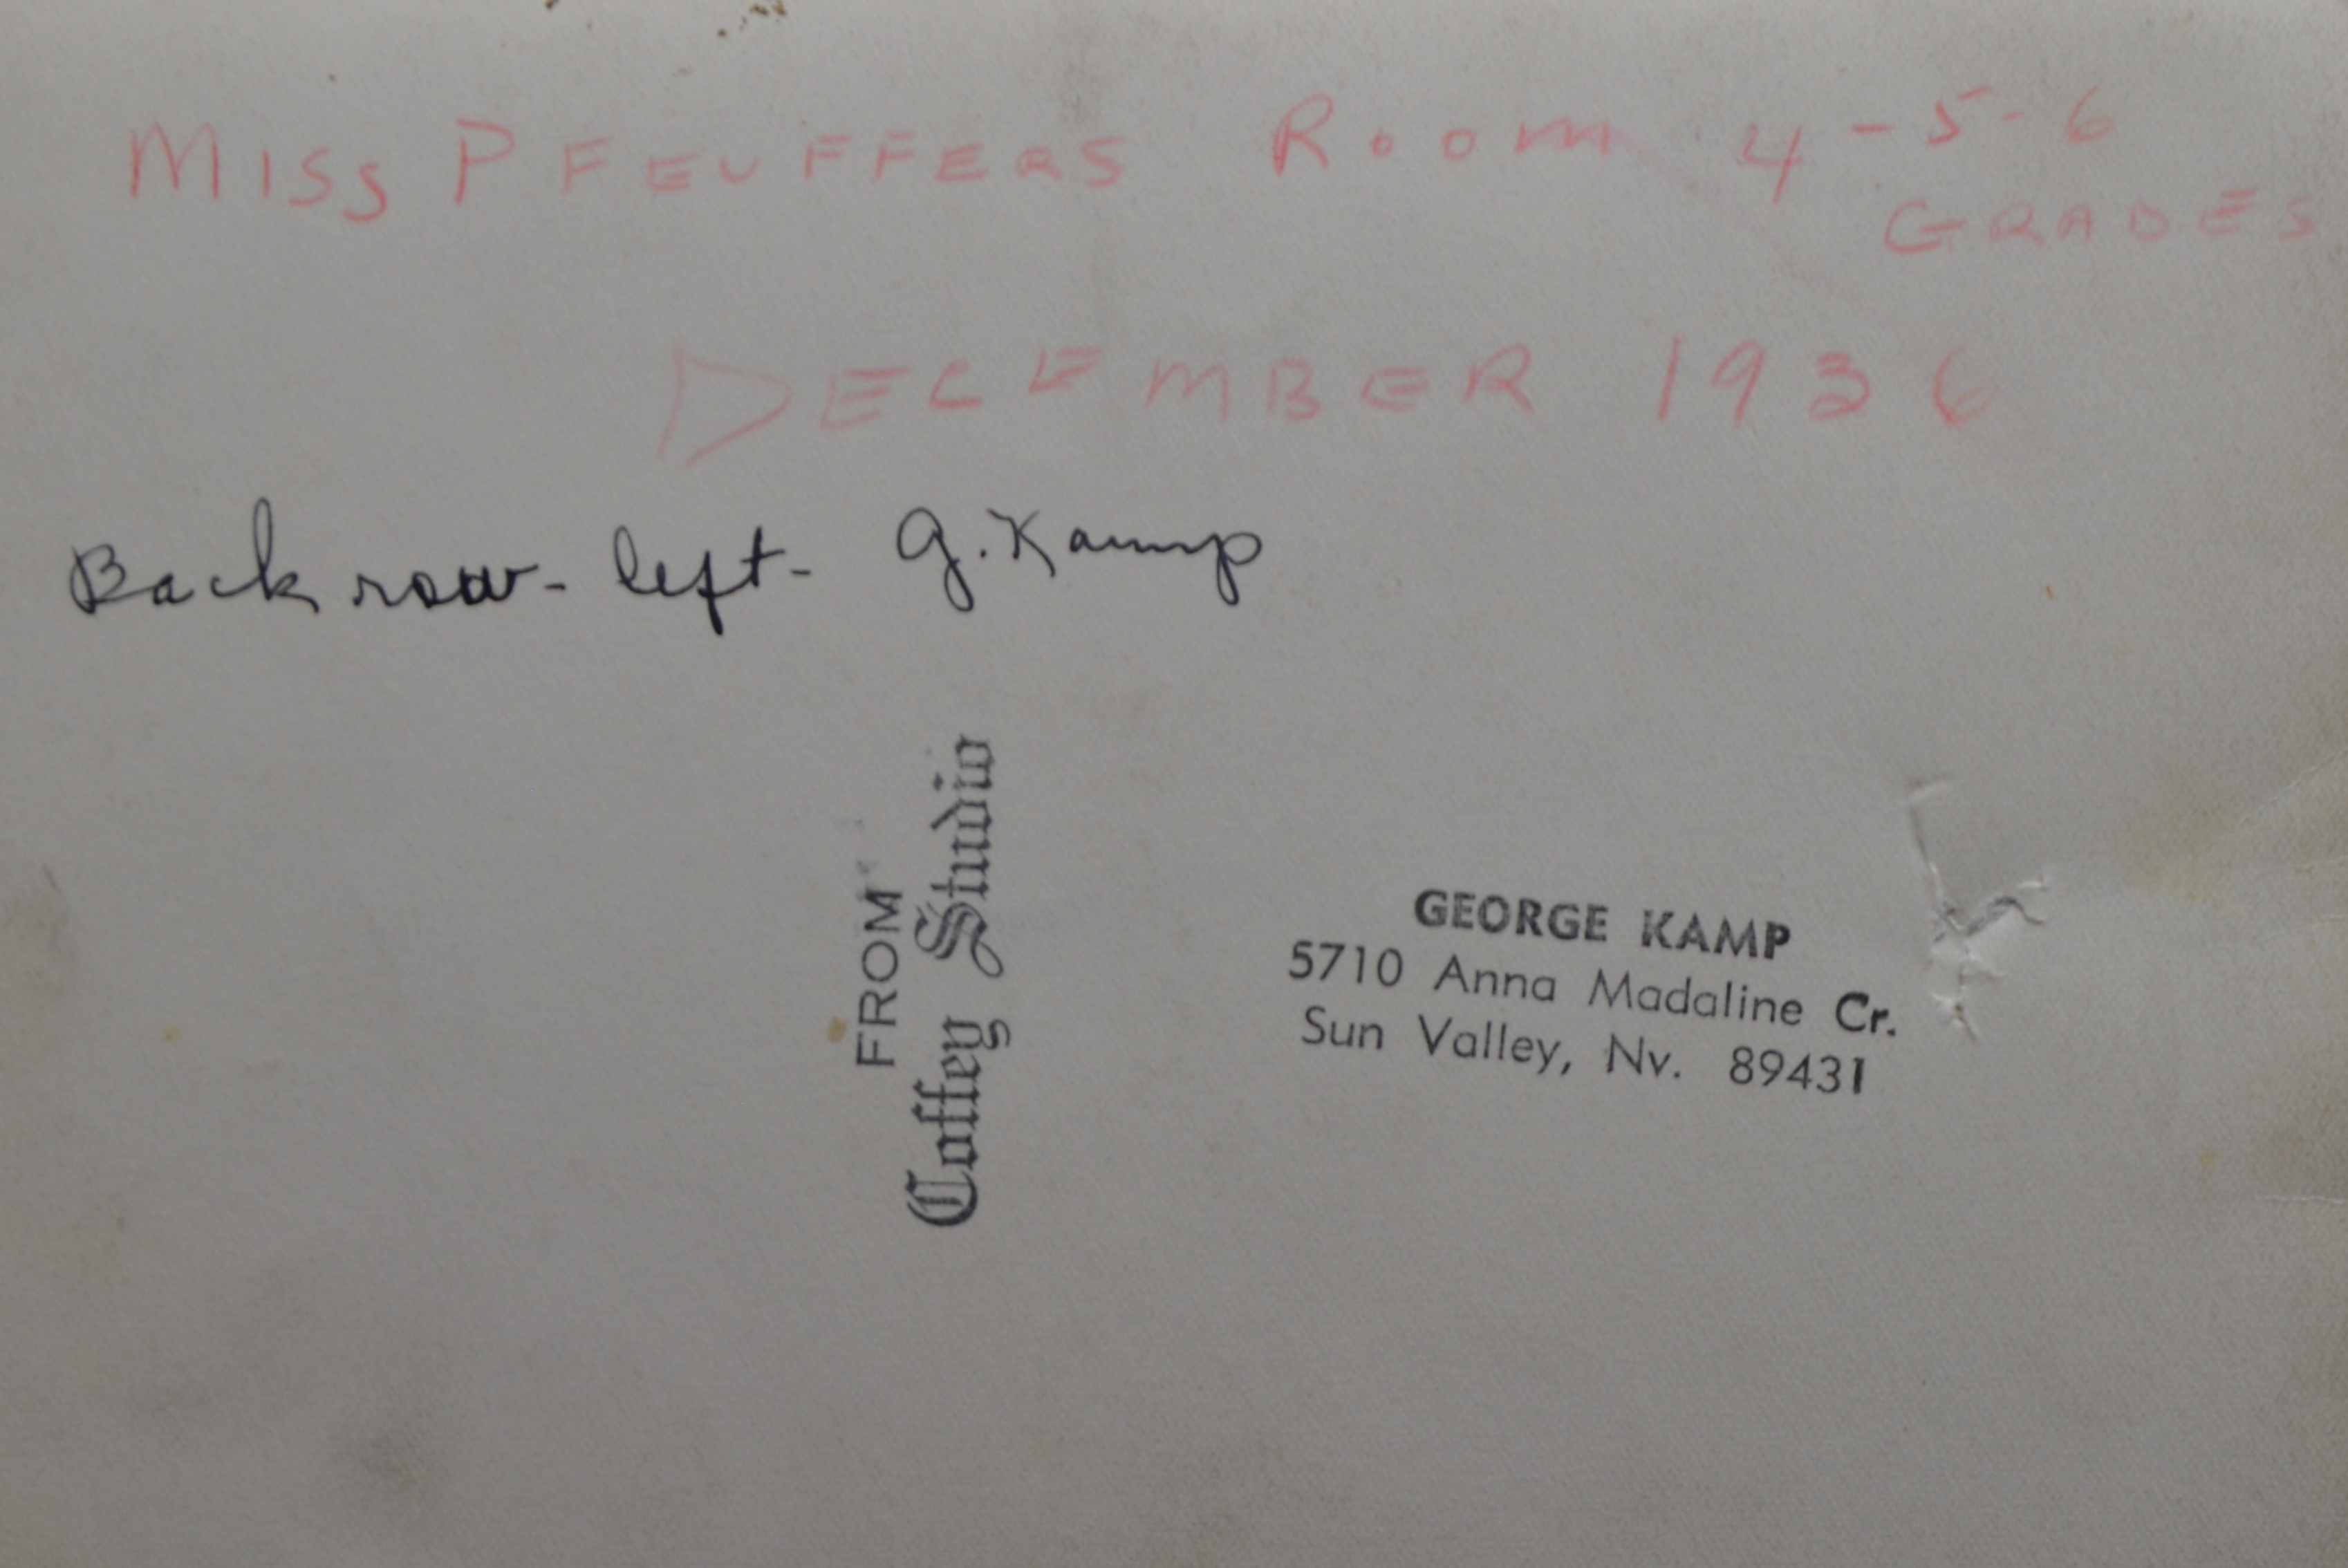 MISS PFEUFFERS ROOM 4-5-6
GRADES
DECEMBER 1936
Back row- left- G. Kamp
FROM
Coffey Studio
GEORGE KAMP
5710 Anna Madaline Cr.
Sun Valley, Nv. 89431